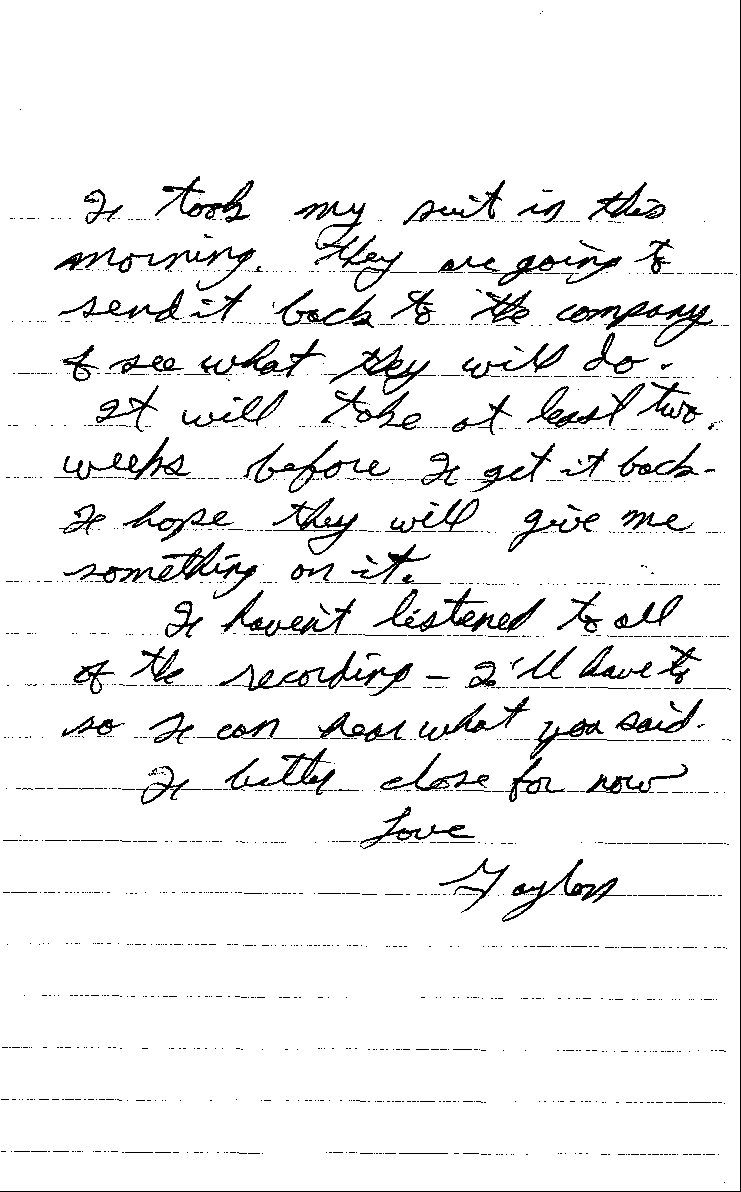 I took my suit in this
morning. They are going to
send it back to the company
& see what they will do.
It will take at least two
weeks before I get it back-
I hope they will give me
something on it.
I haven't listened to all
of the recording - I'll have to
so I can hear what you said.
I better close for now
Love